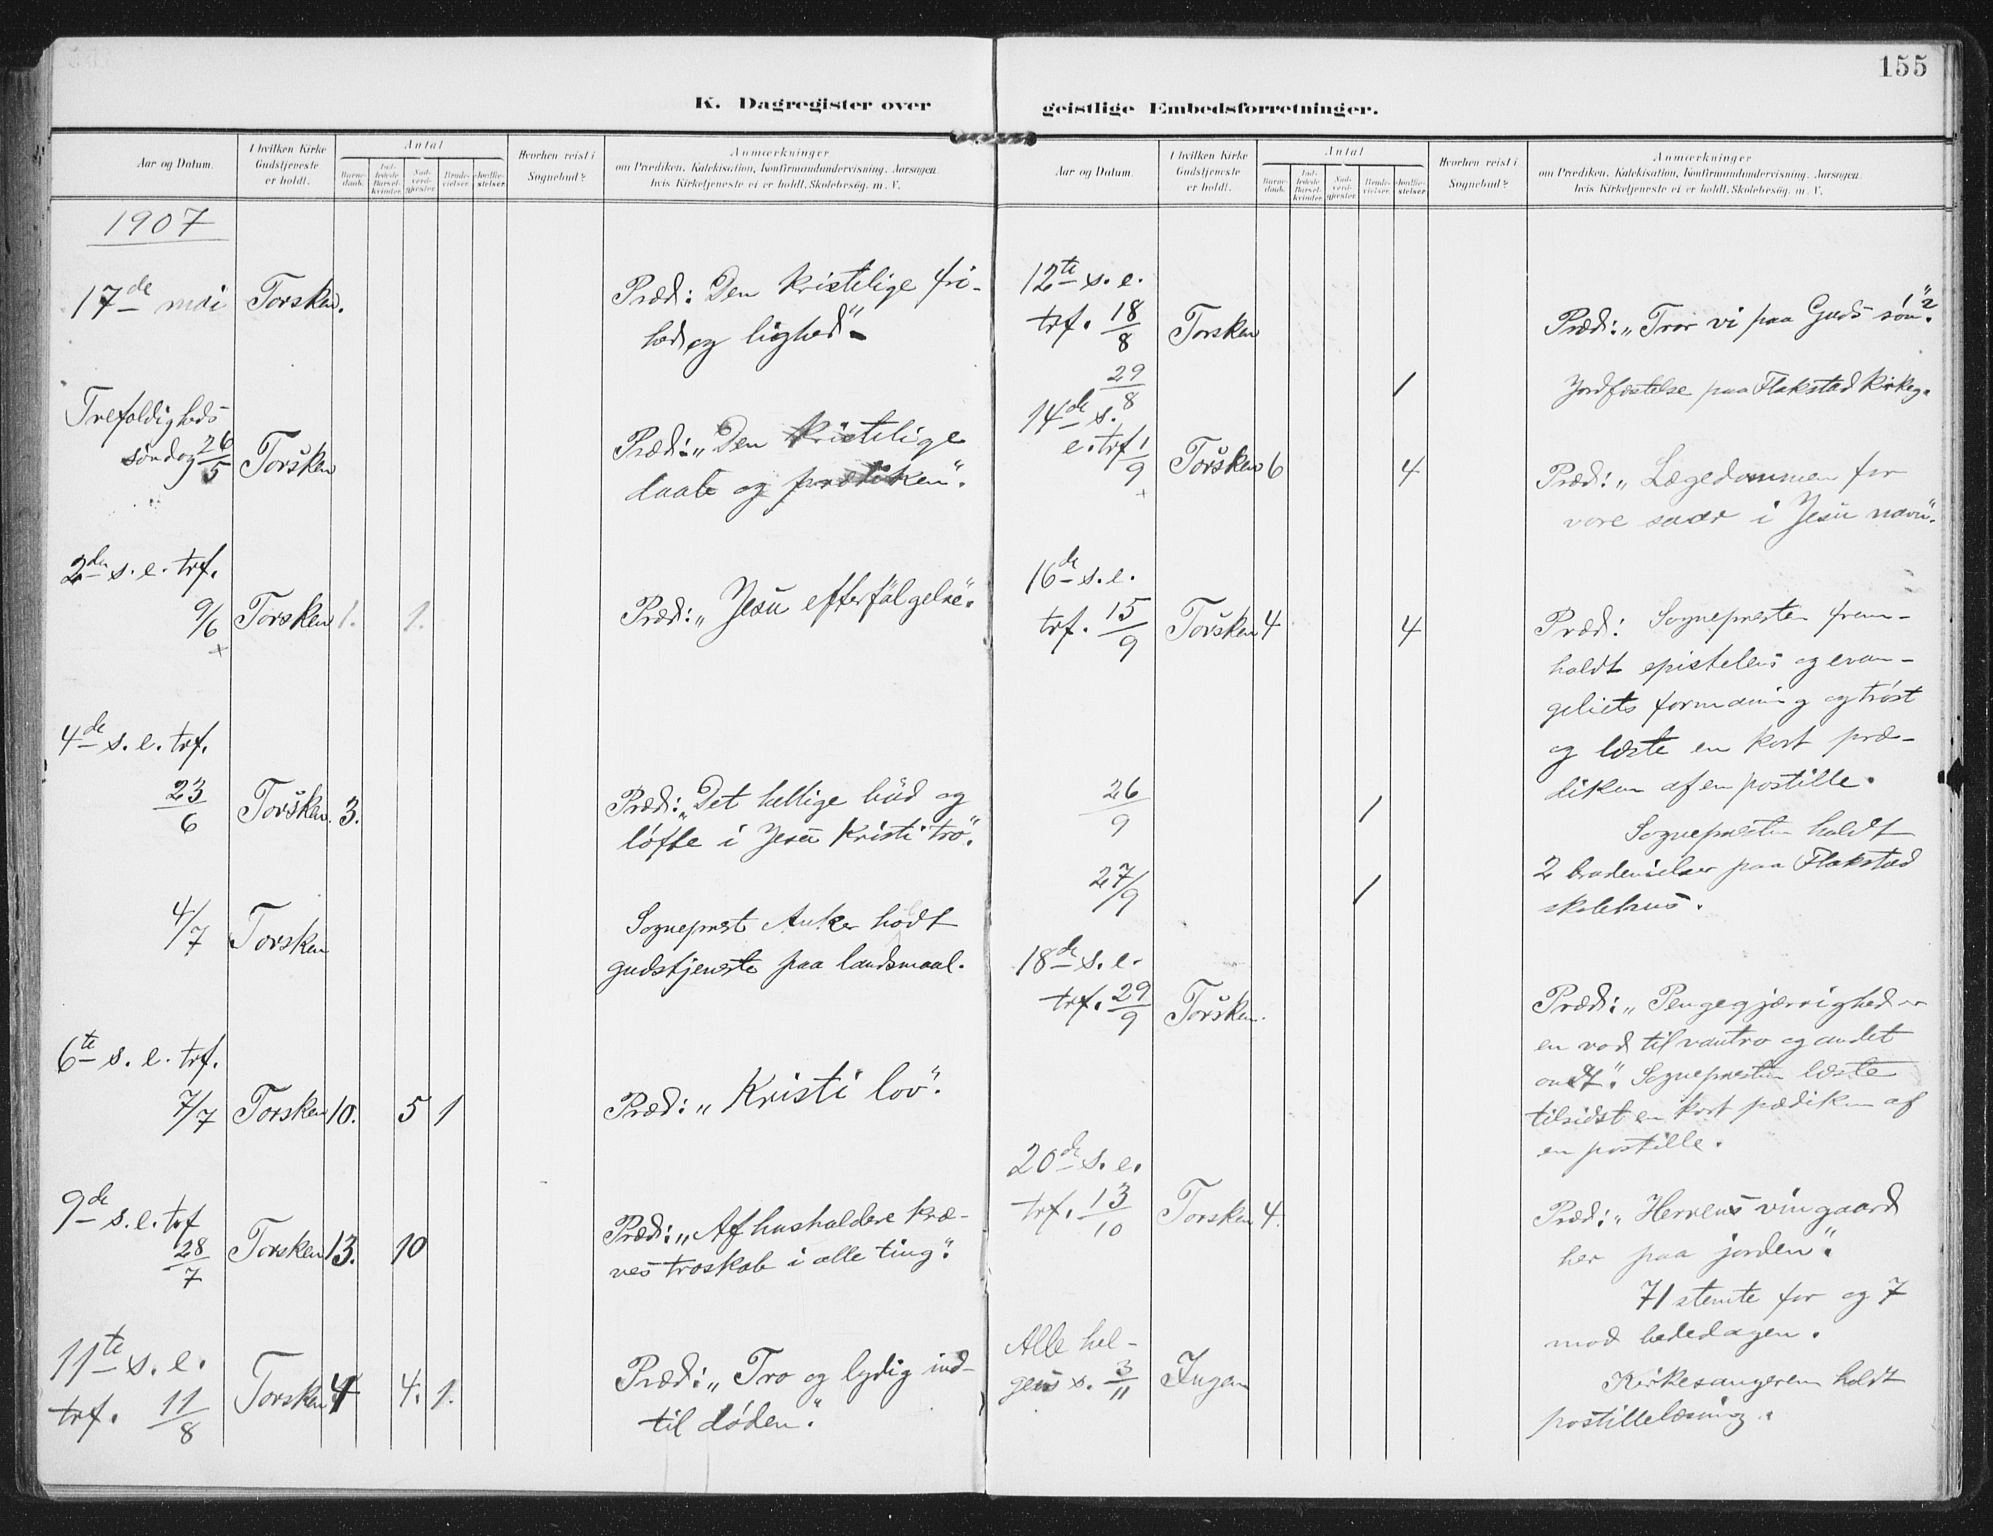 155
K. Dagregister over geistlige Embedsforretninger.
Aar og Datum.
I hvilken Kirke Gudstjeneste er holdt.
Antal
Barne-daab.
Ind-ledede Barsel-kvinder.
Nad-verd-gjester.
Brude-vielser.
Jordfæ-stelser.
Hvorhen reist i Sognebud?
Anmærkninger
om Prædiken, Katekisation, Konfirmandundervisning, Aarsagen,
hvis Kirketjeneste ei er holdt, Skolebesøg. m. V.
1907
17de mai Torsken. Præd: "Den kristelige fri-
hed og lighed"
Trefoldigheds
søndag 26/5 Torsken Præd: "Den kristelige
daab og prædiken".
2den s. e. trf.
9/6 Torsken 1. 1. Præd: "Jesu efterfølgelse".
4de s. e. trf.
23/6 Torsken. 3. Præd: "Det hellige bud og
løfte i Jesu Kristi tro".
4/7 Torsken Sogneprest Anker hodt
gudstjeneste paa landsmaal.
6te s. e. trf.
7/7 Torsken 10. 5 1 Præd: "Kristi lov".
9de s. e. trf
28/7 Torsken 13. 10 Præd: "Af husholdere kræ-
ves troskab i alle ting".
11te s. e.
trf. 11/8 Torsken 4 4. 1. Præd: "Tro og lydig ind-
til døden".
Aar og Datum.
I hvilken Kirke Gudstjeneste er holdt.
Antal
Barne-daab.
Ind-ledede Barsel-kvinder.
Nad-verd-gjester.
Brude-vielser.
Jordfæ-stelser.
Hvorhen reist i Sognebud?
Anmærkninger
om Prædiken, Katekisation, Konfirmandundervisning, Aarsagen,
hvis Kirketjeneste ei er holdt, Skolebesøg. m. V.
12te s. e.
trf. 18/8 Torsken Præd: "Tror vi paa Guds søn"?
29/8 1 Jordfæstelse paa Flakstad kirkeg.
14de s.
e. trf 1/9 Torsken 6 4 Præd: "Lægedommen for
vore saar i Jesu navn".
16de s. e.
trf. 15/9 Torsken 4 4 Præd: Sognepresten frem-
holdt epistelens og evan-
geliets formaning og trøst
og læste en kort præ-
diken af en postille.
26/9 1 Sognepresten holdt
27/9 1 2 brudevielser paa Flakstad
skolehus.
18de s. e.
trf. 29/9 Torsken. Præd: "Pengegjærrighed er
en rod til vantro og andet
ondt". Sognepresten læste
tilsidst en kort prædiken af
en postille.
20de s. e.
trf. 13/10 Torsken 4. Præd: "Herrens vingaard
her paa jorden".
71 stemte for og 7
mod bededagen.
Alle hel-
gens s. 3/11 Kirkesangeren holdt
postillelæsning.